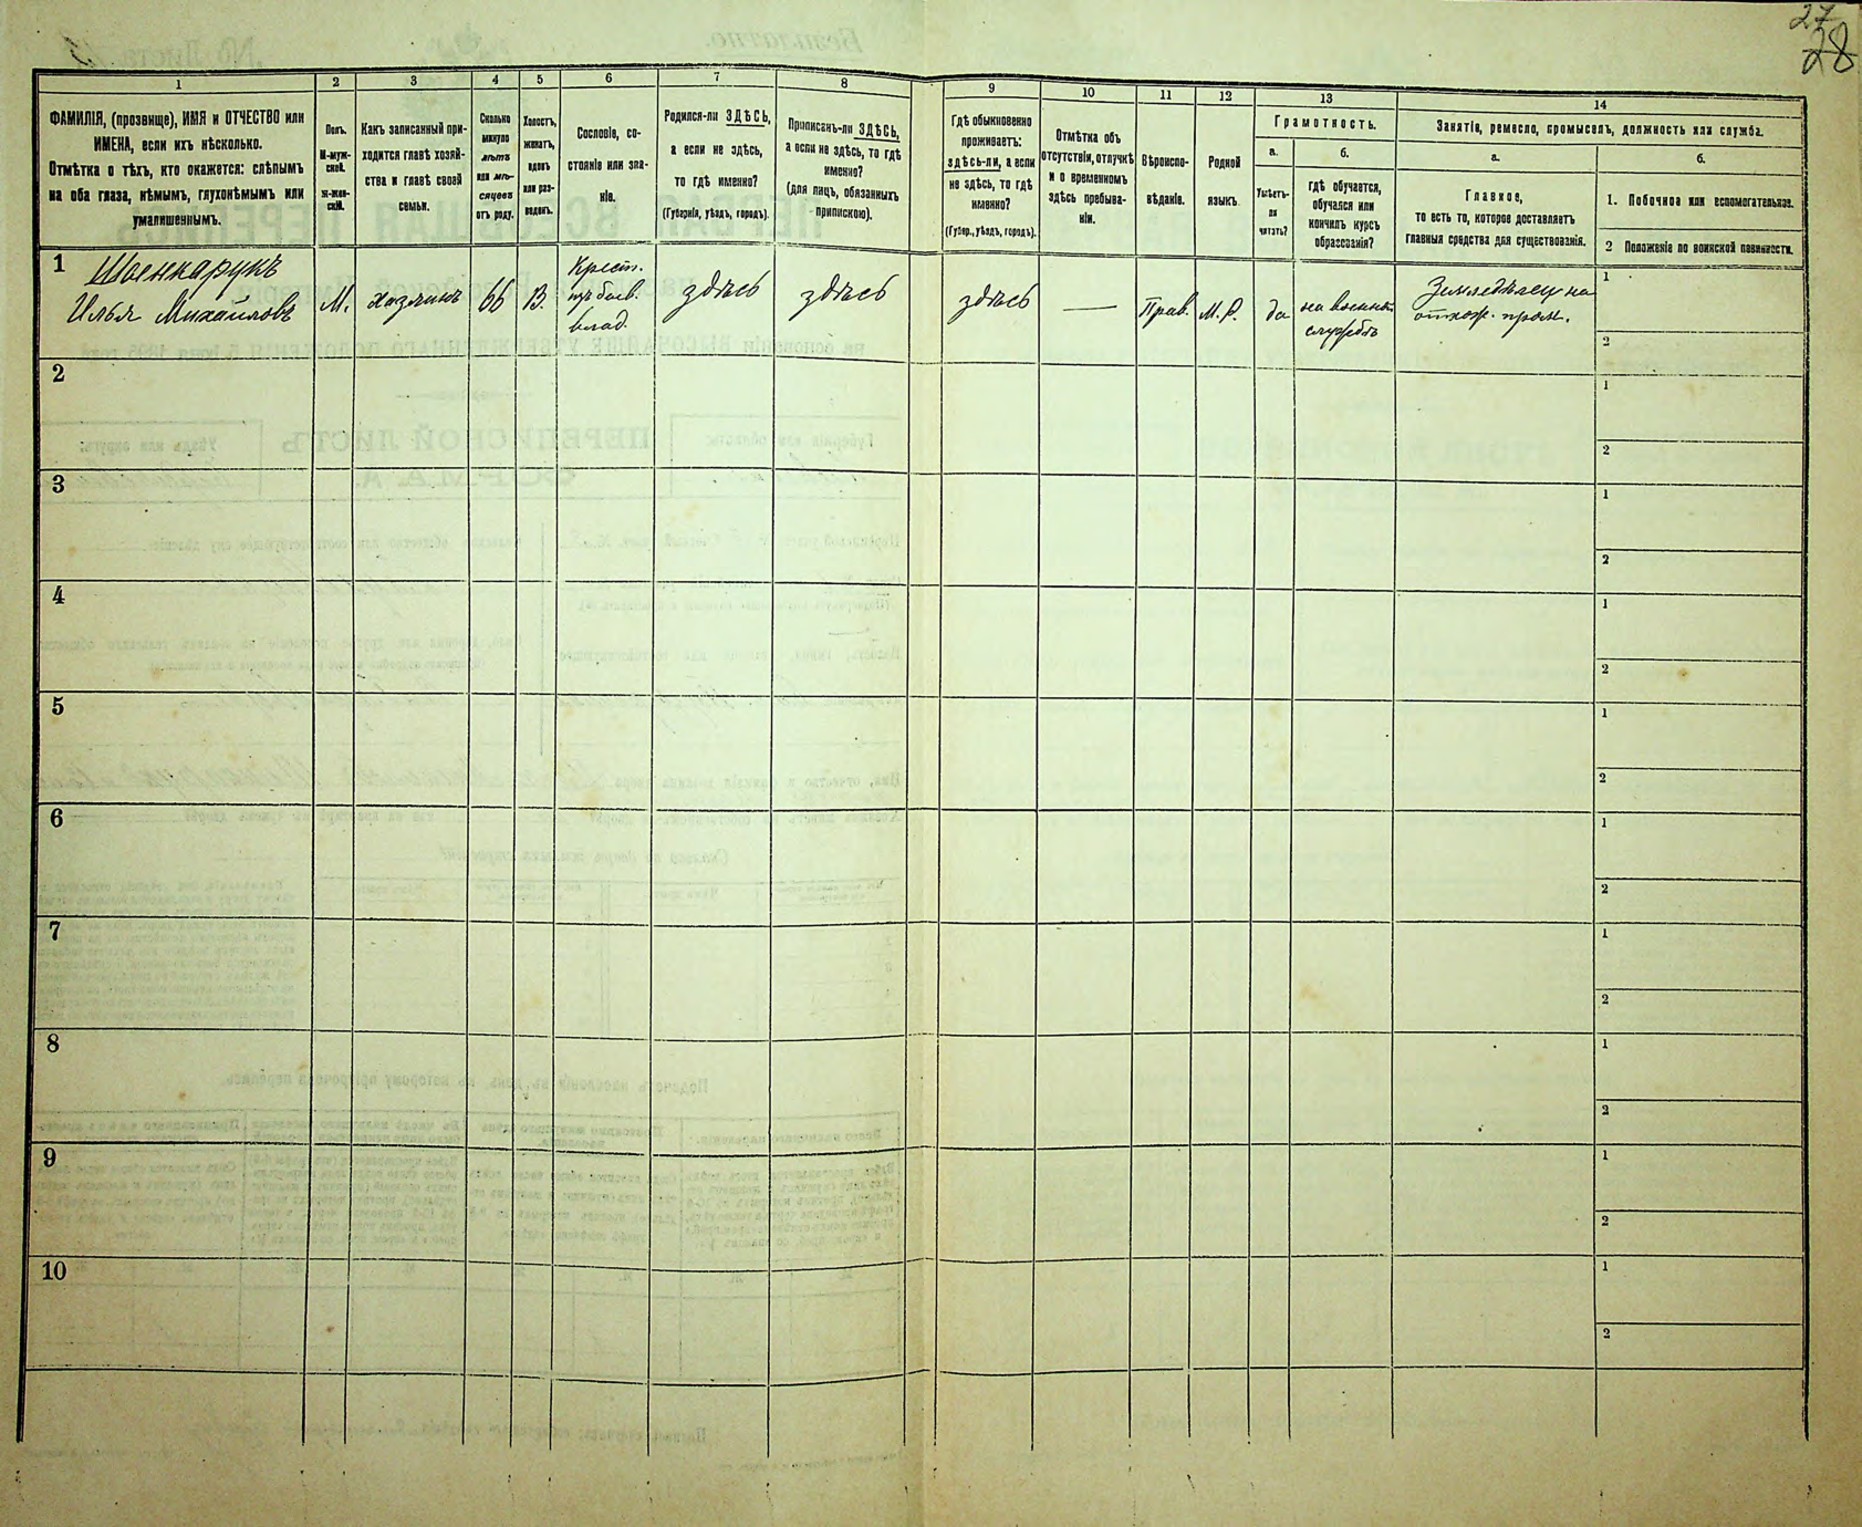 27
28
1
2
3
4
5
6
7
8
9
10
11
12
13
14
ФАМИЛІЯ, (прозвище), ИМЯ и ОТЧЕСТВО или
ИМЕНА, если ихъ нѣсколько.
Отмѣтка о тѣхъ, кто окажется: слѣпымъ
на оба глаза, нѣмымъ, глухонѣмымъ или
умалишеннымъ.
Полъ.
М-муж-
ской.
ж-жен-
скій.
Какъ записанный при-
ходится главѣ хозяй-
ства и главѣ своей
семьи.
Сколько
минуло
лѣтъ
или мѣ-
сяцевъ
отъ роду.
Холостъ,
женатъ,
вдовъ
или раз-
веденъ.
Сословіе, со-
стояніе или зва-
ніе.
Родился-ли ЗДѢСЬ,
а если не здѣсь,
то гдѣ именно?
(Губернія, уѣздъ, городъ).
Приписанъ-ли ЗДѢСЬ,
а если не здѣсь, то гдѣ
именно?
(для лицъ, обязанныхъ
припискою).
Гдѣ обыкновенно
проживаетъ:
здѣсь-ли, а если
не здѣсь, то гдѣ
именно?
(Губер., уѣздъ, городъ).
Отмѣтка объ
отсутствіи, отлучкѣ
и о временномъ
здѣсь пребыва-
ніи.
Вѣроиспо-
вѣданіе.
Родной
языкъ.
Грамотность.
а.
б.
Умѣетъ-
ли
читать?
гдѣ обучается,
обучался или
кончилъ курсъ
образованія?
Занятіе, ремесло, промыселъ, должность или служба.
а.
б.
Главное,
то есть то, которое доставляетъ
главныя средства для существованія.
1. Побочное или вспомогательное.
2 Положеніе по воинской повинности.
1
Илья Михайловъ
М.
хозяинъ
66
В.
Крест.
изъ бывш.
влад.
здѣсь
здѣсь
здѣсь
—
Прав.
М. Р.
да
на военной
службѣ
Земледѣлец на
отхож. пром.
1
2
2
1
2
3
1
2
4
1
2
5
1
2
6
1
2
7
1
2
8
1
2
9
1
2
10
1
2